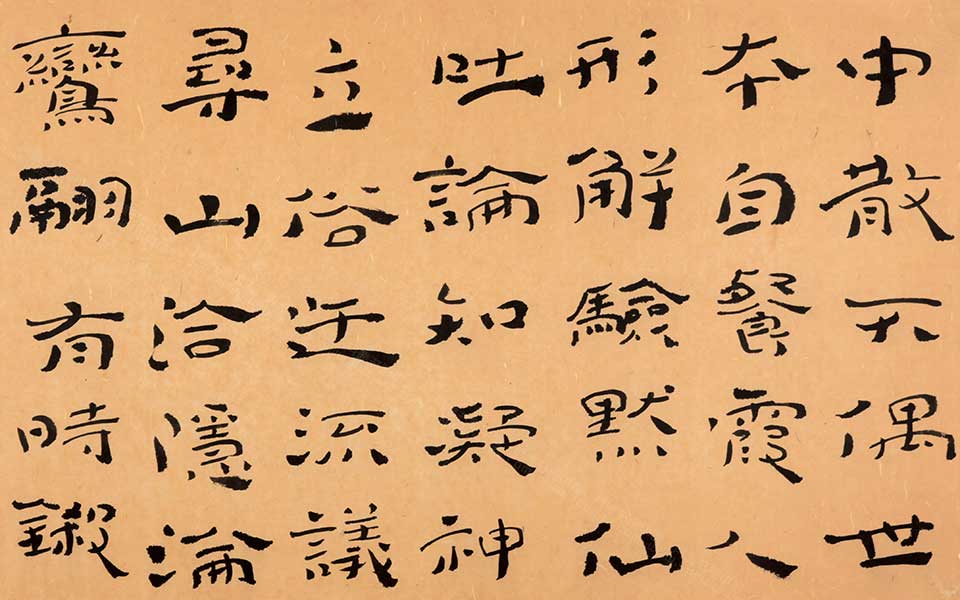 中散不偶世
本自餐霞人
形解驗默仙
吐論知凝神
立俗迕流議
尋山洽隱淪
鸞翮有時鎩